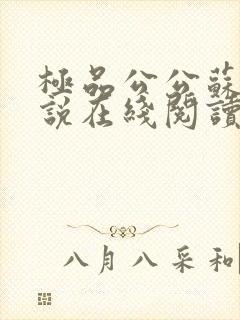 極品公公蘇
說在綫閱讀
八月八采和